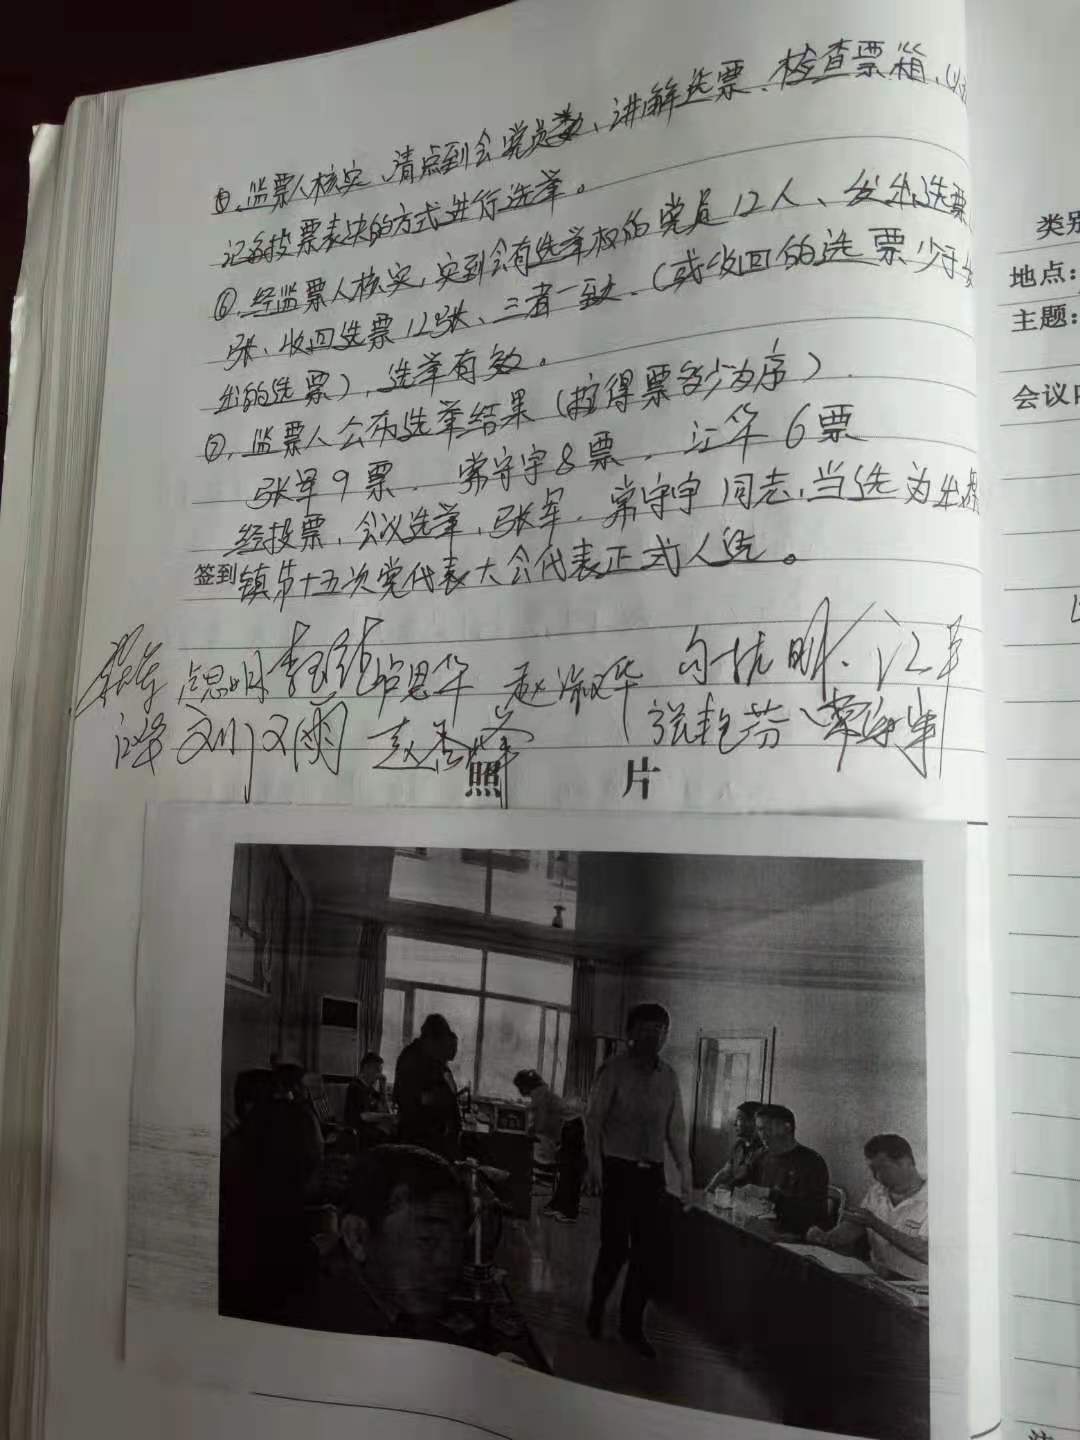 ⑤、监票人核实、清点到会党员数、讲解选票、检查票箱、以
记名投票表决的方式进行选举。
⑥、经监票人核实，实到会有选举权的党员12人、发出选票
张、收回选票12张、三者一致、（或收回的选票少于发
出的选票），选举有效。
⑦、监票人公布选举结果（按得票多少为序）.
张军9票. 常守宇8票. 江华6票
经投票、会议选举，张军. 常守宇同志，当选为
签到 镇第十五次党代表大会代表正式人选。
李 占思华 赵淑华 江军
江华 刘汉雨 赵 张艳芬
照 片
类别
地点：
主题：
会议内